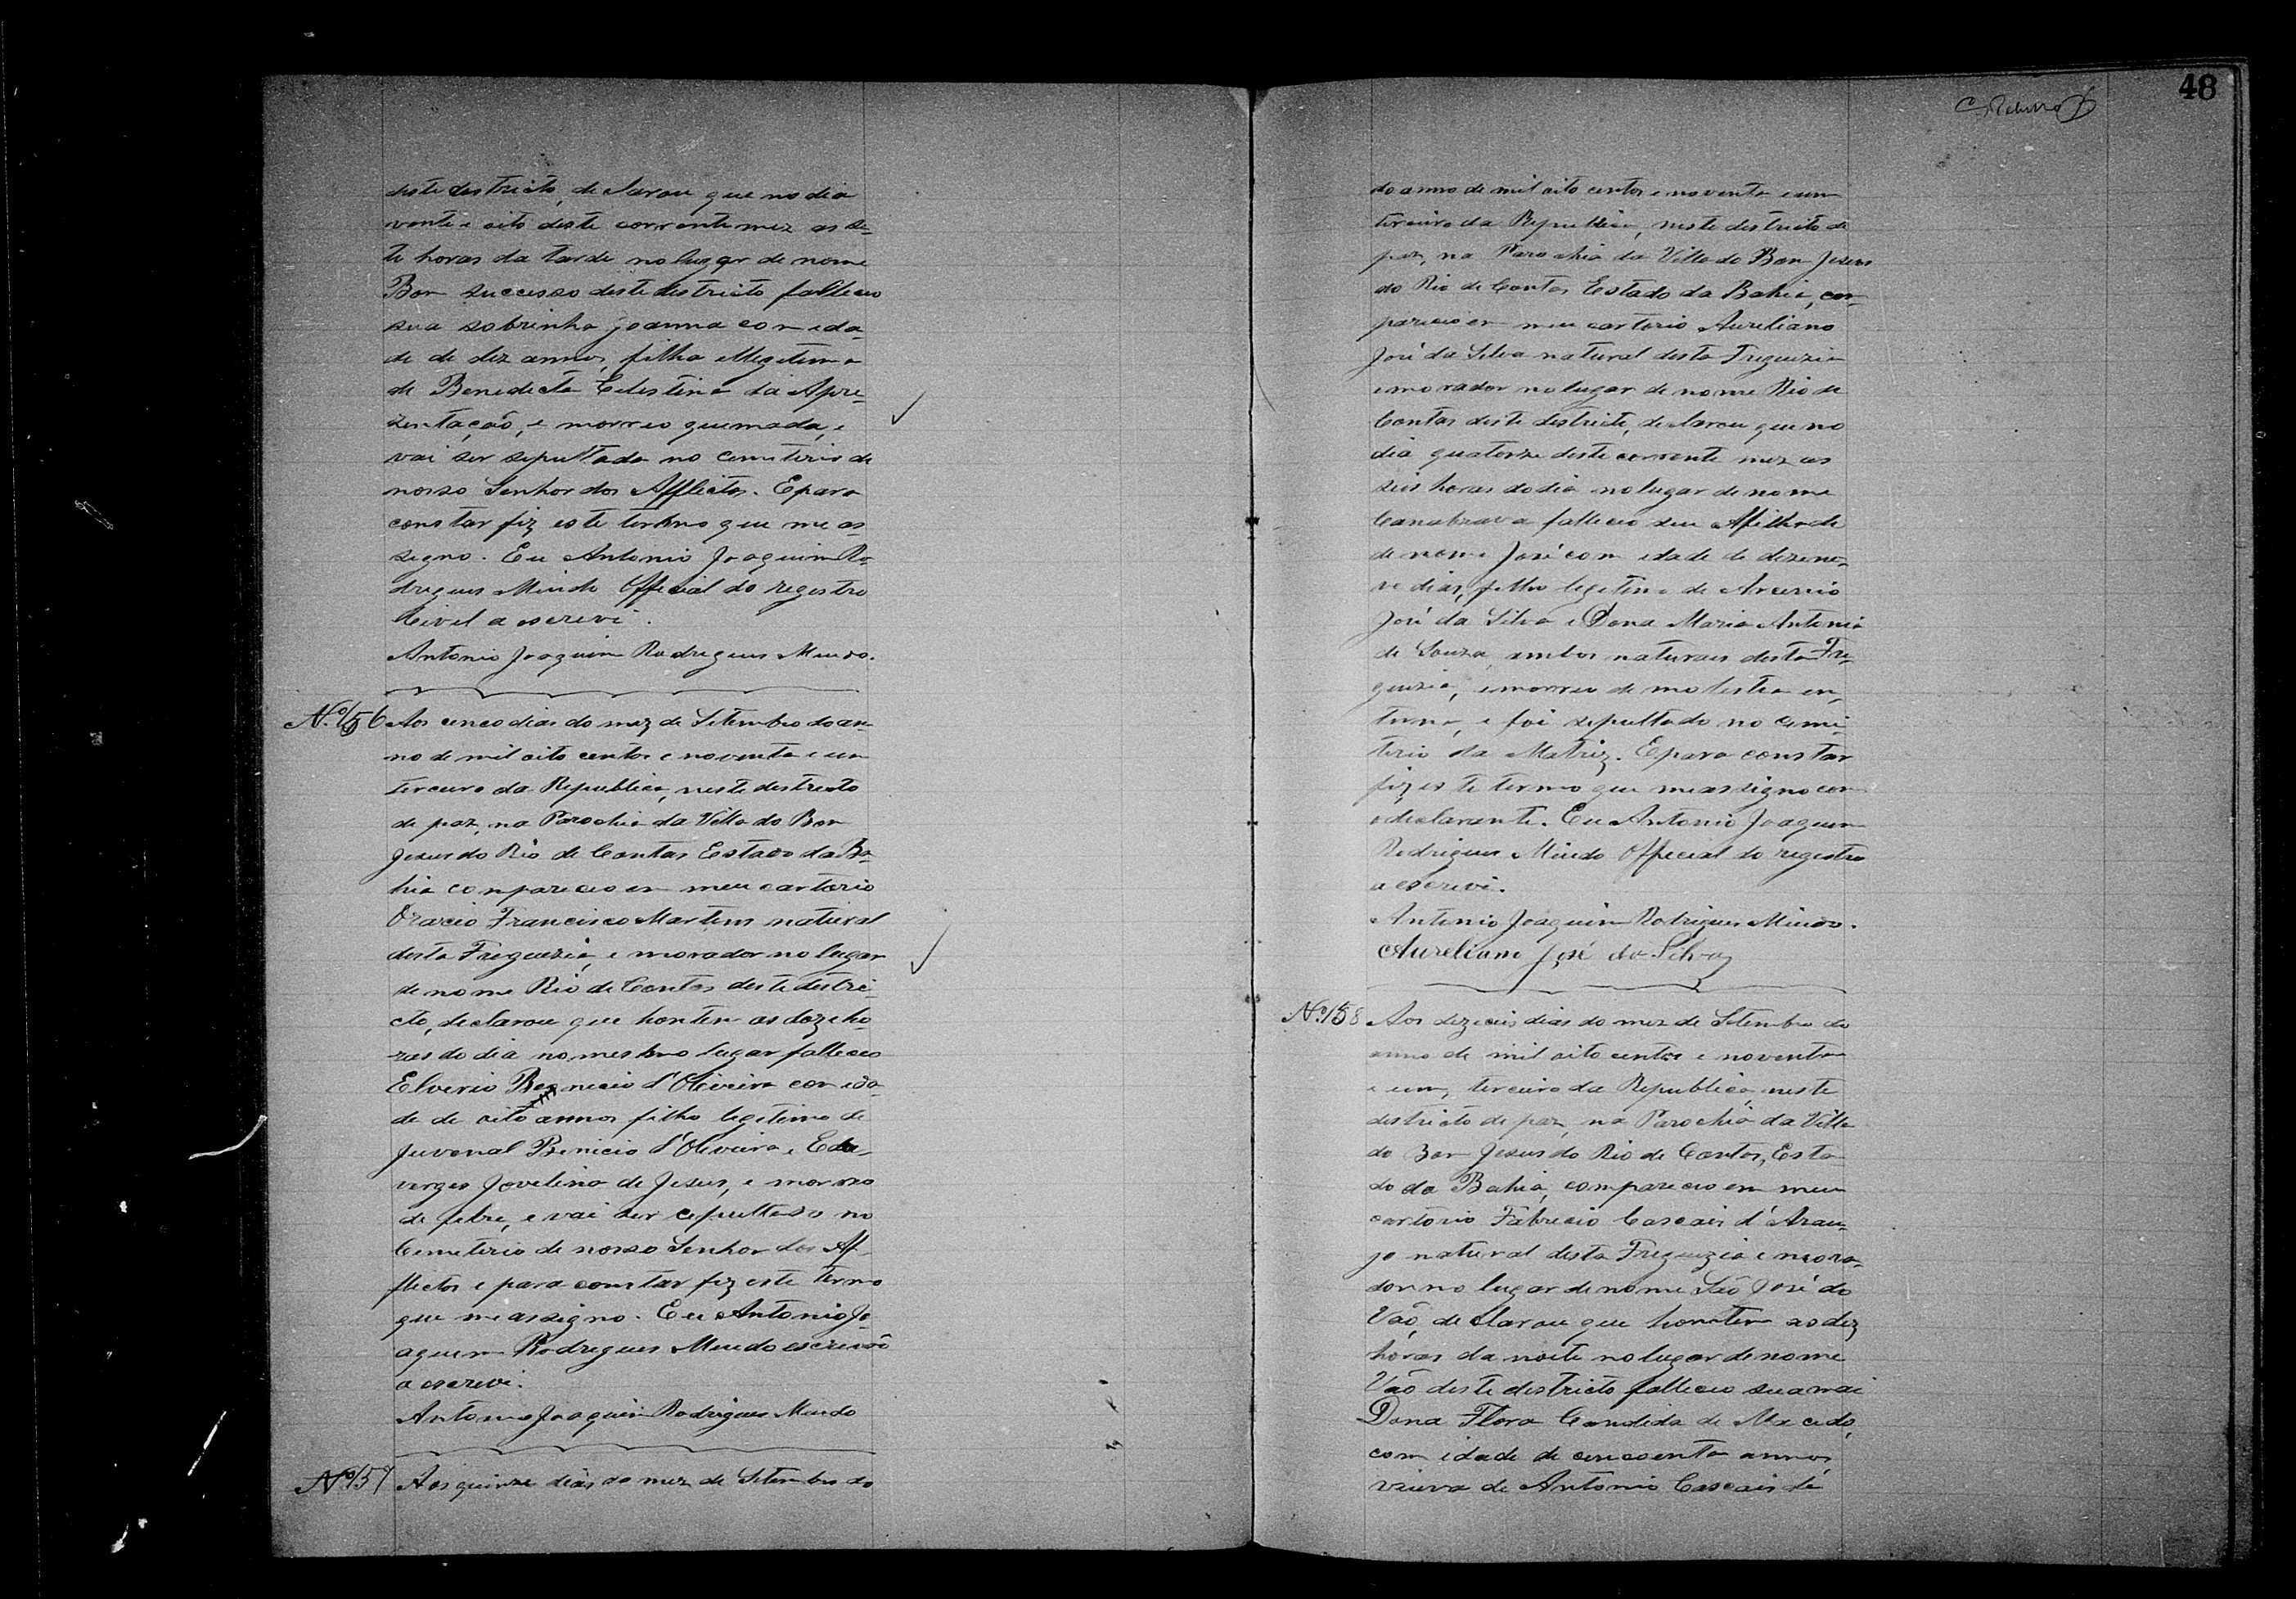 deste destricto, declarou que no dia
vente e oito deste corrente mez as se-
te horas da tarde no lugar de nome
Bom successo deste destricto falleceo
sua sobrinha Joanna com ida-
de de dez annos, filha illegetima
de Benedicta Celestina da Apre-
zentação, e morreo queimada, e
vai ser sepultada no cemeterio de
nosso Senhor dos Afflictos. E para
constar fiz este termo que me as-
segno. Eu Antonio Joaquim Ro-
drigues Miudo Official do registro
Civel a escrevi.
Antonio Joaquim Rodrigues Miudo.
N.º 156 Aos cenco dias do mez de Setembro do an-
no de mil oito centos e noventa e um
terceiro da Republica, neste destricto
de paz, na Parochia da Villa do Bom
Jesus do Rio de Contas Estado da Ba-
hia compareceo em meu cartorio
Oracio Francisco Martins natural
desta Freguezia, e morador no lugar
de nome Rio de Contas deste destri-
cto, declarou que hontem as doze ho-
ras do dia no mesmo lugar falleceo
Elverio Benicio d'Oliveira com ida-
de de oito annos filho legetimo de
Juvenal Benicio d'Oliveira e
Jovelina de Jesus, e morreo
de febre, e vai ser cepultado no
Cemeterio de nosso Senhor dos Af-
flictos e para constar fiz este termo
que me assegno. Eu Antonio Jo-
aquim Rodrigues Miudo escrivão
a escrevi.
Antonio Joaquim Rodrigues Miudo
N.º 157 Aos quinze dias do mez de Setembro do
48
do anno de mil oito centos e noventa e um
terceiro da Republica, neste destricto de
paz, na Parochia da Villa do Bom Jesus
do Rio de Contas Estado da Bahia, com-
pareceo em meu cartorio Aureliano
José da Silva natural desta Freguezia
e morador no lugar de nome Rio de
Contas deste destricto, declarou que no
dia quatorze deste corrente mez as
seis horas do dia no lugar de nome
Canabrava falleceo seu Afilhado
de nome José com idade de dezeno-
ve dias, filho legetimo de Arcenio
José da Silva e Dona Maria Antonia
de Souza, ambos naturaes desta Fre-
guezia, e morreo de molestia en-
terna, e foi sepultado no cemi-
terio da Matriz. E para constar
fiz este termo que me assigno com
o declarante. Eu Antonio Joaquim
Rodrigues Miudo Official do registro
a escrevi.
Antonio Joaquim Rodrigues Miudo.
Aureliano José da Silva
N.º 158 Aos dezeceis dias do mez de Setembro do
anno de mil oito centos e noventa
e um, terceiro da Republica, neste
destricto de paz, na Parochia da Villa
do Bom Jesus do Rio de Contas, Esta-
do da Bahia, compareceo em meu
cartorio Fabricio Cascais d'Arau-
jo natural desta Freguezia e mora-
dor no lugar de nome São José do
Vão, declarou que hontem as dez
horas da noite no lugar de nome
Vão deste destricto falleceo sua mai
Dona Flora Candida de Macedo,
com idade de cincoenta annos,
viuva de Antonio Cascais de